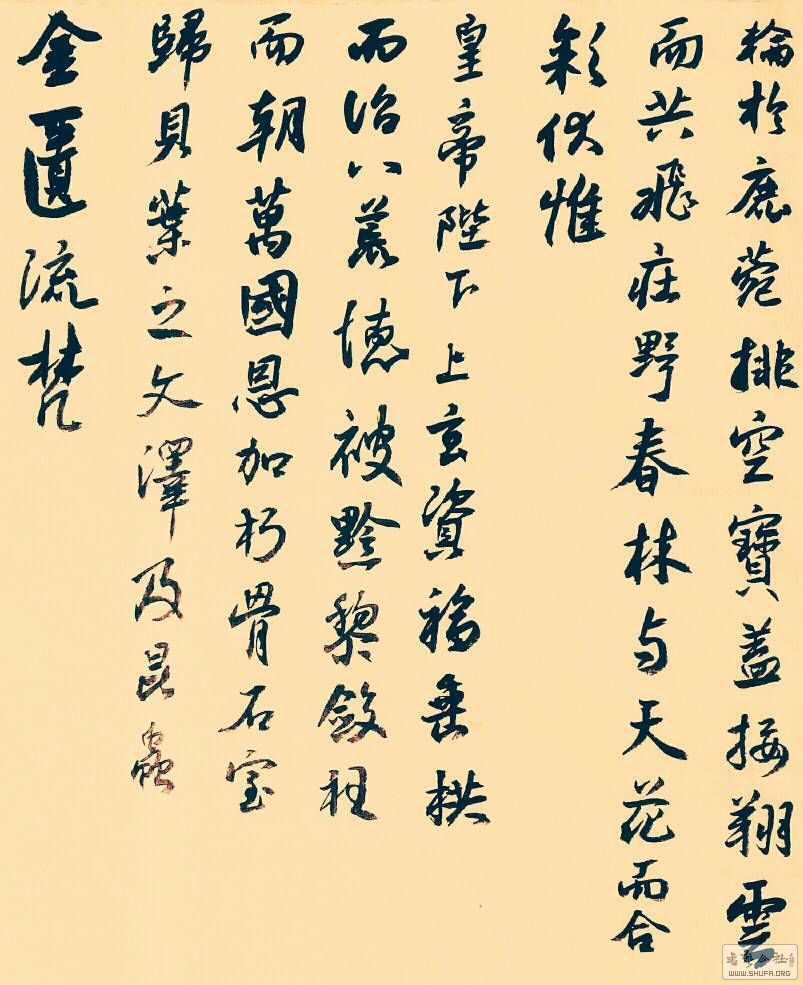 輪於鹿菀排空寶蓋接翔雲
而共飛莊野春林与天花而合
彩伏惟
皇帝陛下上玄資福垂拱
而治八荒德被黔黎斂衽
而朝萬國恩加朽骨石室
歸貝葉之文澤及昆蟲
金匱流梵
WWW.SHUFA.ORG